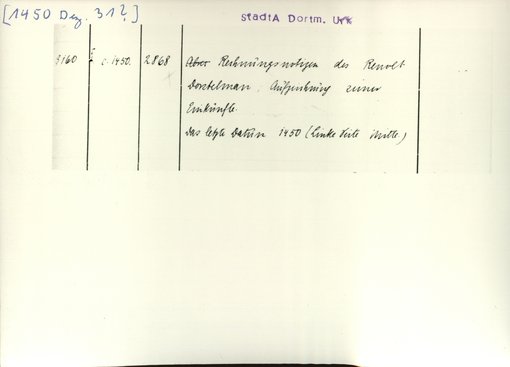 [1450 Dez. 31?]
StadtA Dortm. Urk
3160 c. 1450. 2868 Aber Rechnungsnotizen des Renolt
Dorstelman. Aufzeichnung seiner
Einkünfte.
Das letzte Datum 1450 (linke Seite Mitte)